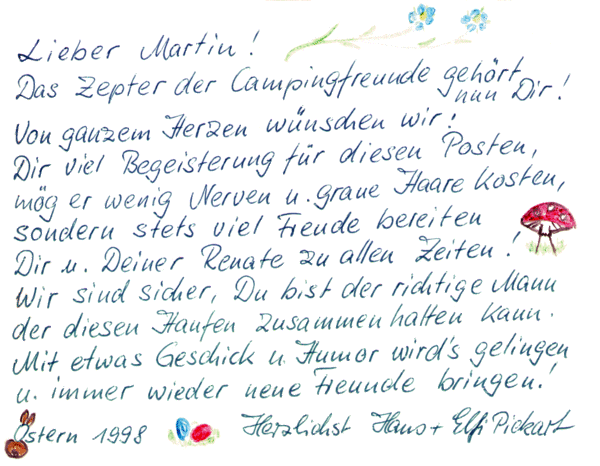 Lieber Martin!
Das Zepter der Campingfreunde gehört
nun Dir!
Von ganzem Herzen wünschen wir!
Dir viel Begeisterung für diesen Posten,
mög er wenig Nerven u. graue Haare kosten,
sondern stets viel Freude bereiten
Dir u. Deiner Renate zu allen Zeiten!
Wir sind sicher, Du bist der richtige Mann
der diesen Haufen zusammenhalten kann.
Mit etwas Geschick u. Humor wird's gelingen
u. immer wieder neue Freunde bringen!
Ostern 1998 Herzlichst Hans + Elfi Pickart